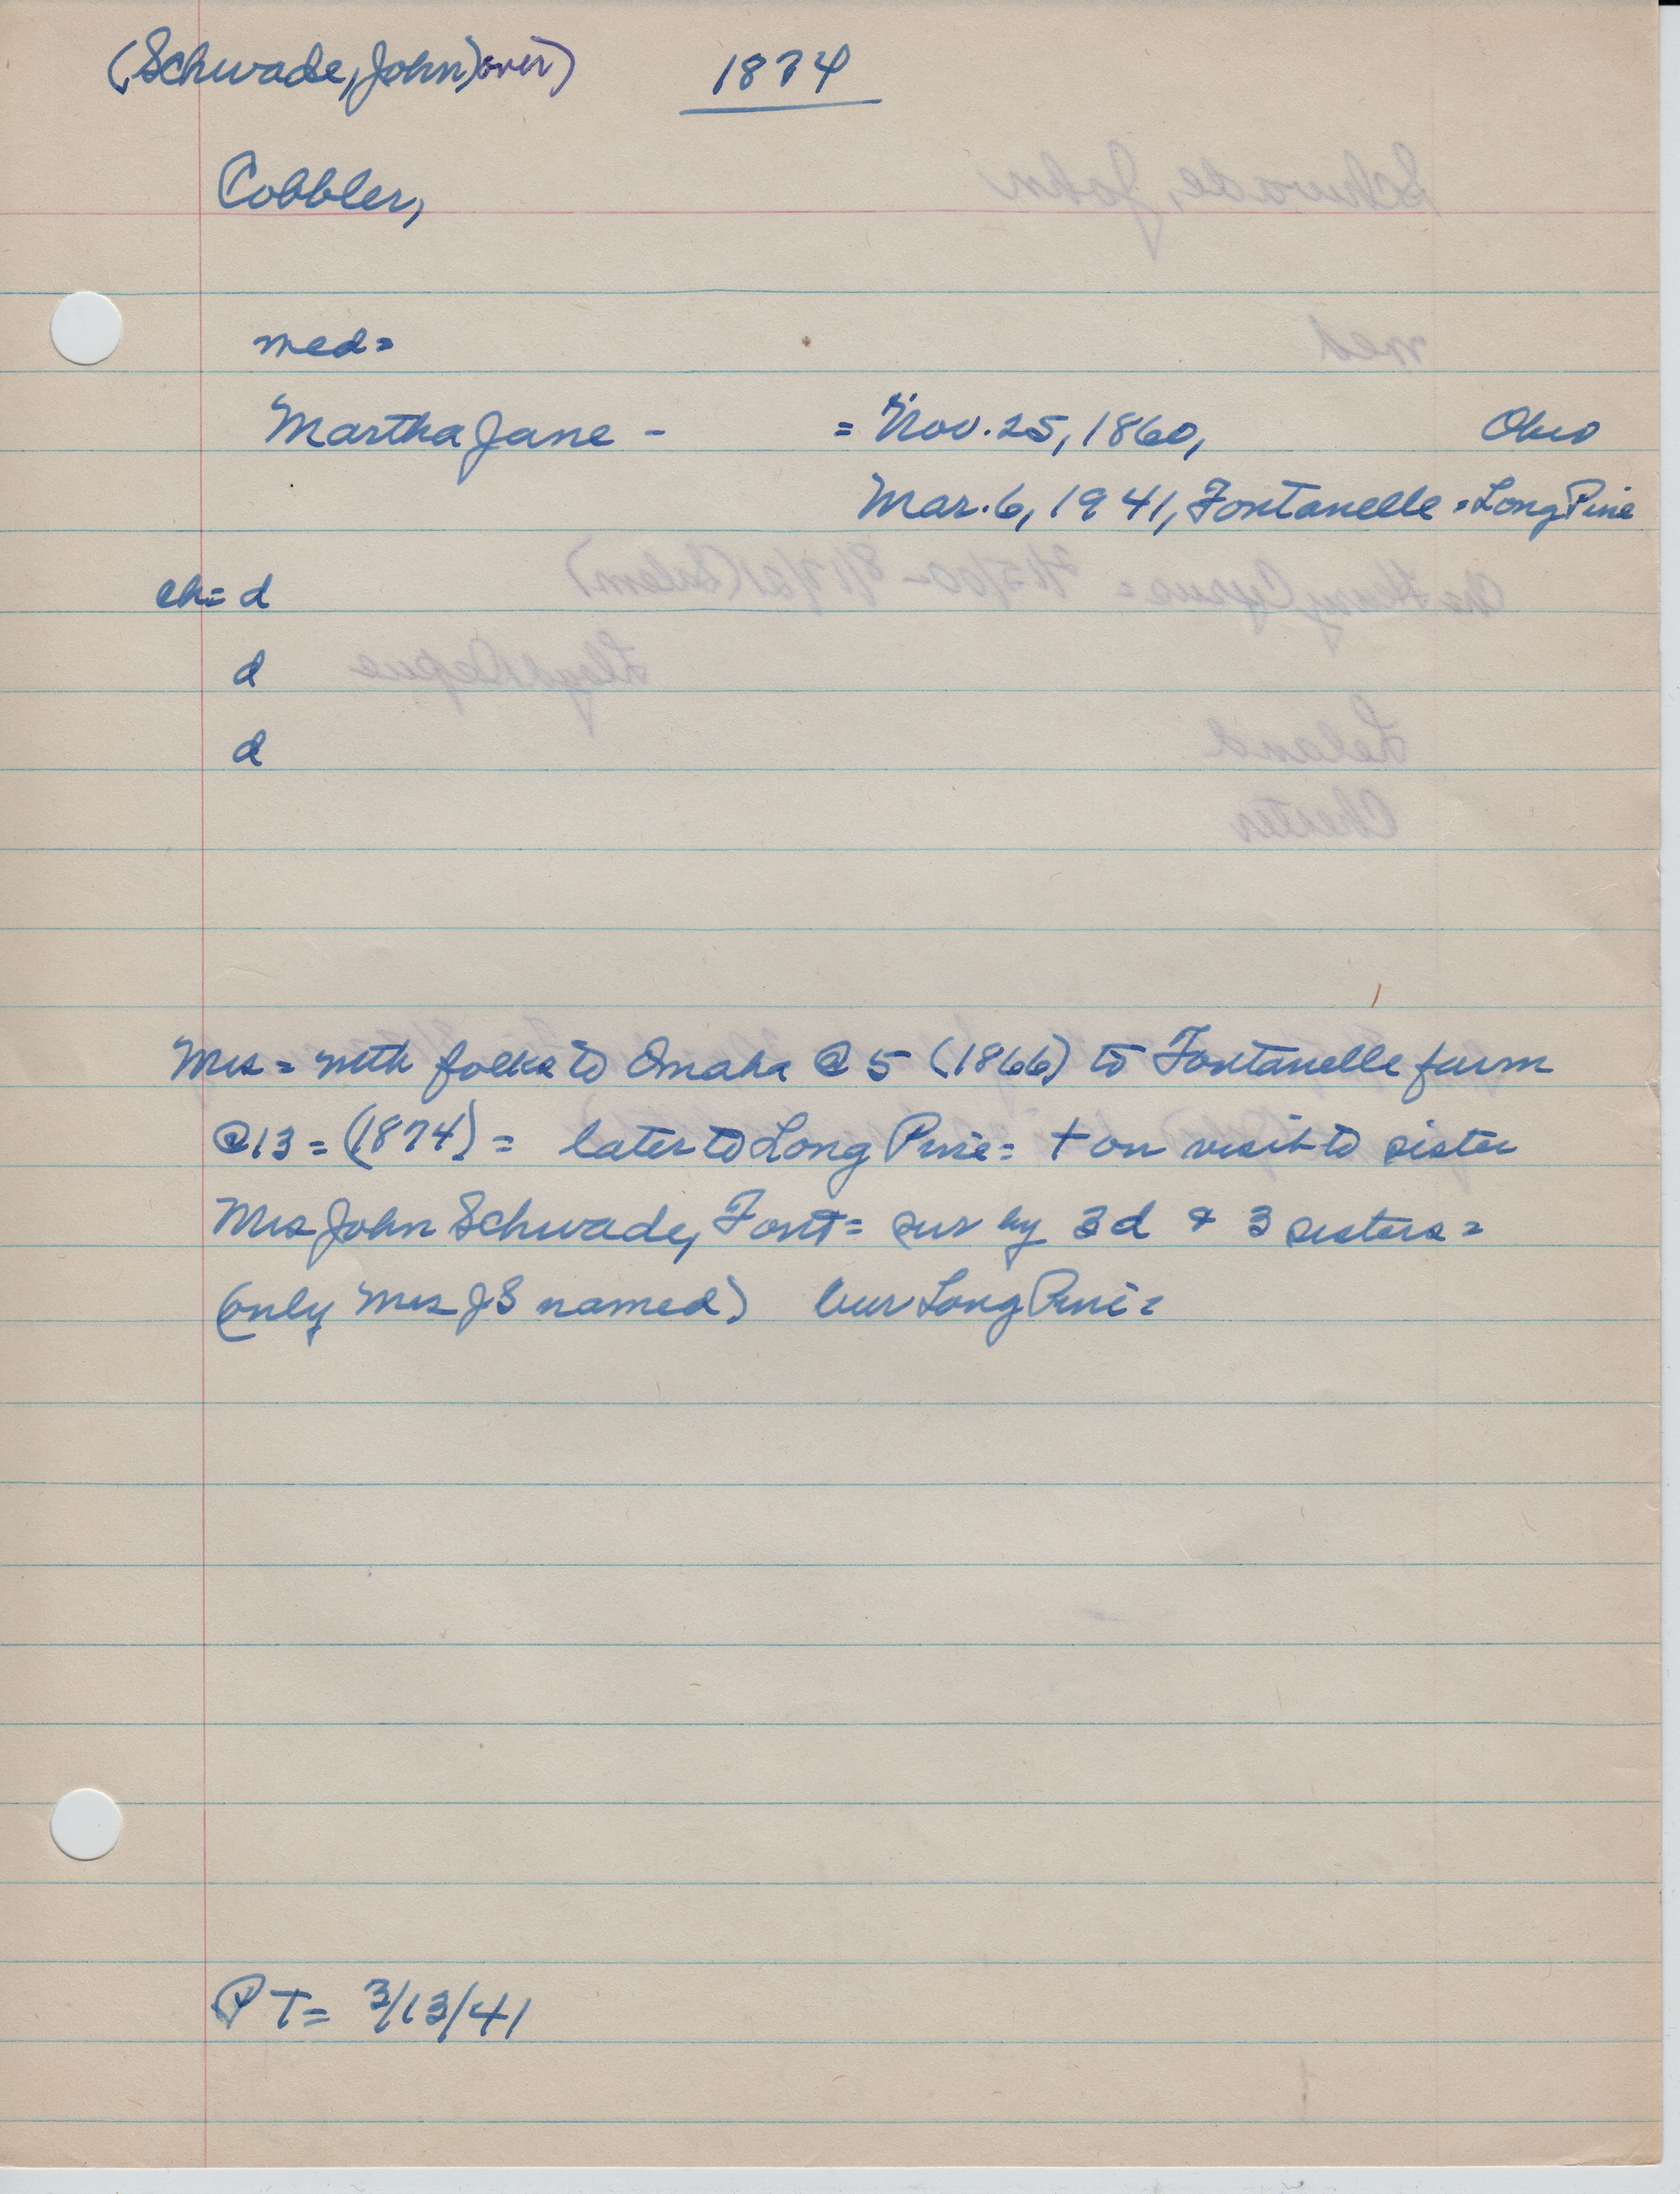 (Schwade, John) over) 1874
Cobbler,
med=
Martha Jane - = Nov. 25, 1860, Ohio
Mar. 6, 1941, Fontanelle = Long Pine
ch= d
d
d
Mrs = with folks to Omaha @ 5 (1866) to Fontanelle farm
@ 13 = (1874) = later to Long Pine = + on visit to sister
Mrs John Schwade, Font = sur by 3 d & 3 sisters =
(only Mrs JS named) bur Long Pine =
PT = 3/13/41